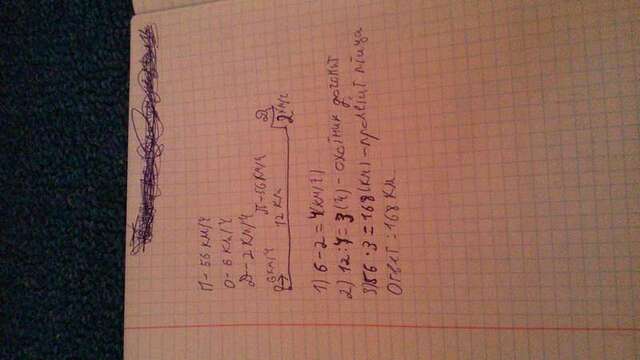 П-56 км/ч
О-6 км/ч
Д-2 км/ч
6 км/ч П-56 км/ч Д
О 12 км 2 км/ч
1) 6-2=4(км/ч)
2) 12:4=3(ч)-охотник догонит
3) 56·3=168(км)-пролетит птица
Ответ:168 км